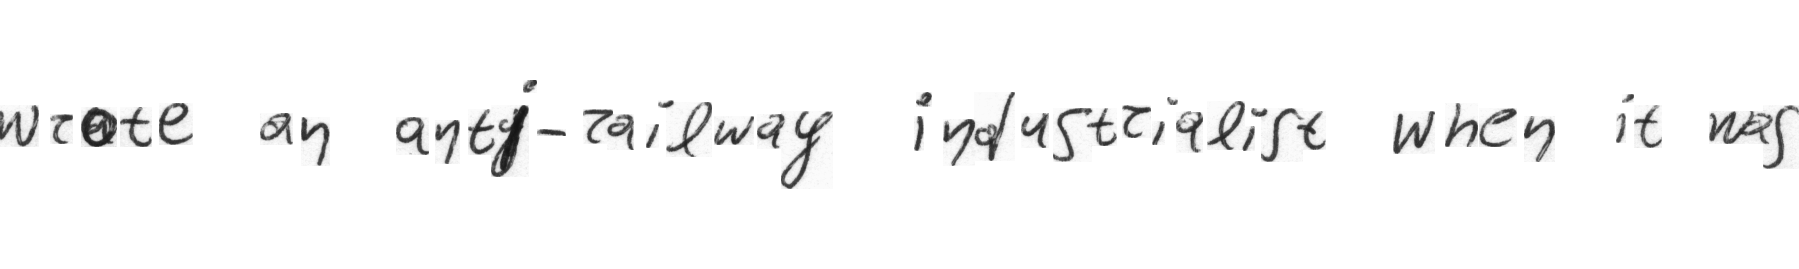 wrote an anti-railway industrialist when it was